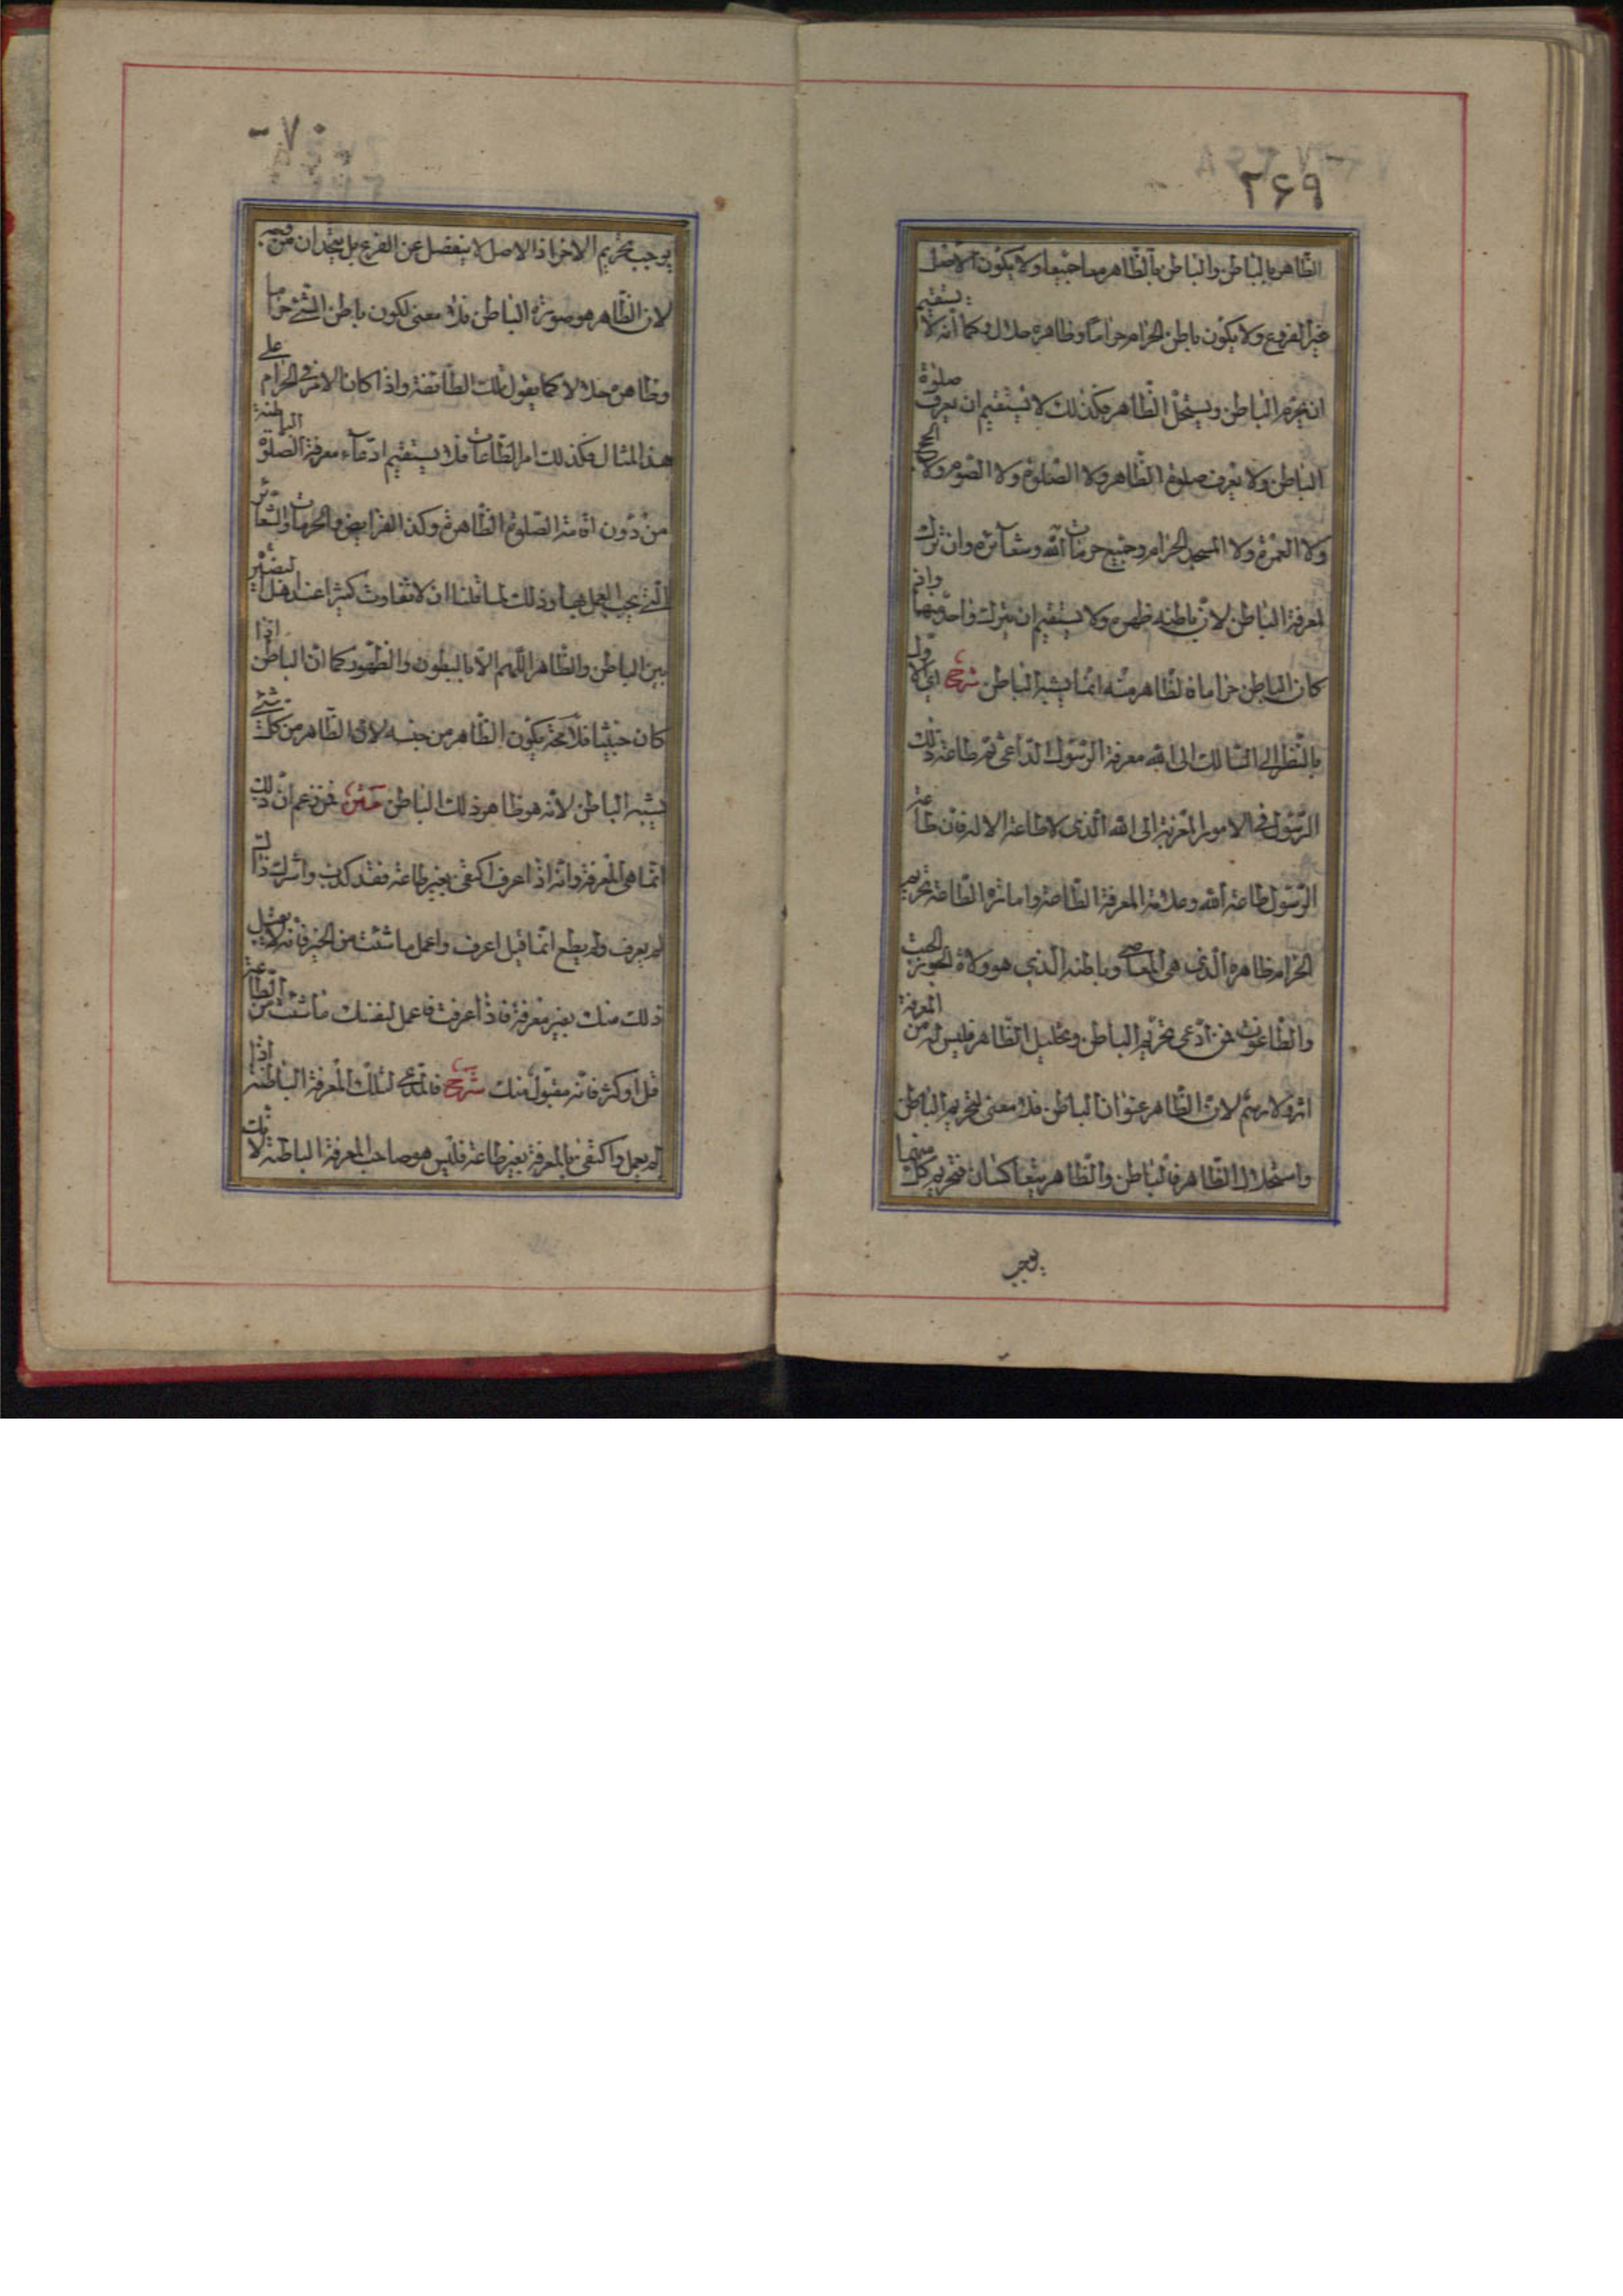 ۲۶۹
الظّاهر بالباطن والباطن بالظّاهر معا جمیعا ولا یکون الاصل
غیر الفروع ولا یکون باطن الحرام حراماً وظاهره حلال وکما انّه لا یستقیم
ان یحرّم الباطن ویستحلّ الظّاهر فکذلک لا یستقیم ان یعرف صلوة
الباطن ولا یعرف صلوة الظّاهر ولا الصّلوة ولا الصّوم ولا الحج
ولا العمرة ولا المسجد الحرام وجمیع حرمات اللّه وشعائره وان ترک
لمعرفة الباطن لانّ باطنه ظهره ولا یستقیم ان یترک واحد منها واذا
کان الباطن حراما فالظاهر منه انّما یشبه الباطن شرح ای الاول
بالنّظر الی السّالک الی اللّه معرفة الرّسول الدّاعی ثم طاعة ذلک
الرّسول فی الامور المقربة الی اللّه الّذی لا طاعة الا له فان طاعة
الرّسول طاعة اللّه وعلامة المعرفة الطّاعة وامارة الطّاعة تحریم
الحرام ظاهره الّذی هی المعاصی وباطنه الّذی هو ولاة الجور الجبت
والطّاغوت فمن ادّعی تحریم الباطن وتحلیل الظّاهر فلیس له من المعرفة
اثر ولا رسم لانّ الظّاهر عنوان الباطن فلا معنی لتحریم الباطن
واستحلال الظّاهر فالباطن والظّاهر یتعاکسان فتحریم کل منهما
یوجب
۲۷۰
یوجب تحریم الاخر اذ الاصل لا ینفصل عن الفرع بل یتّحدان من وجه
لان الظّاهر هو صورة الباطن فلا معنی لکون باطن الشّیء حراما
وظاهره حلالا کما یقول تلک الطّائفة واذا کان الامر فی الحرام علی
هذا المثال فکذلک امر الطّاعات فلا یستقیم ادّعاء معرفة الصّلوة الباطنة
من دون اقامة الصّلوة الظّاهرة وکذا الفرایض والحرمات والشّعائر
الّتی یجب العمل بها وذلک لما قلنا ان لا تفاوت کثیرا عند اهل البصائر
بین الباطن والظّاهر اللّهم الّا بالبطون والظّهور کما انّ الباطن اذا
کان خبیثا فلا محة یکون الظّاهر من جنسه لانّ الظّاهر من کل شیء
یشبه الباطن لانّه هو ظاهر ذلک الباطن متن فمن زعم انّ ذلک
انّما هی المعرفة وانّه اذا عرف اکتفی بغیر طاعة فقد کذب واشرک ذاک لم
لم یعرف ولم یطع انّما قیل اعرف واعمل ما شئت من الخیر فانه لا یقبل
ذلک منک بغیر معرفة فاذا عرفت فاعمل لنفسک ما شئت من الطّاعة
قلّ او کثر فانّه مقبول منک شرح فالمدّعی لتلک المعرفة الباطنة اذا
لم یعمل واکتفی بالمعرفة بغیر طاعة فلیس هو صاحب المعرفة الباطنة لانّ